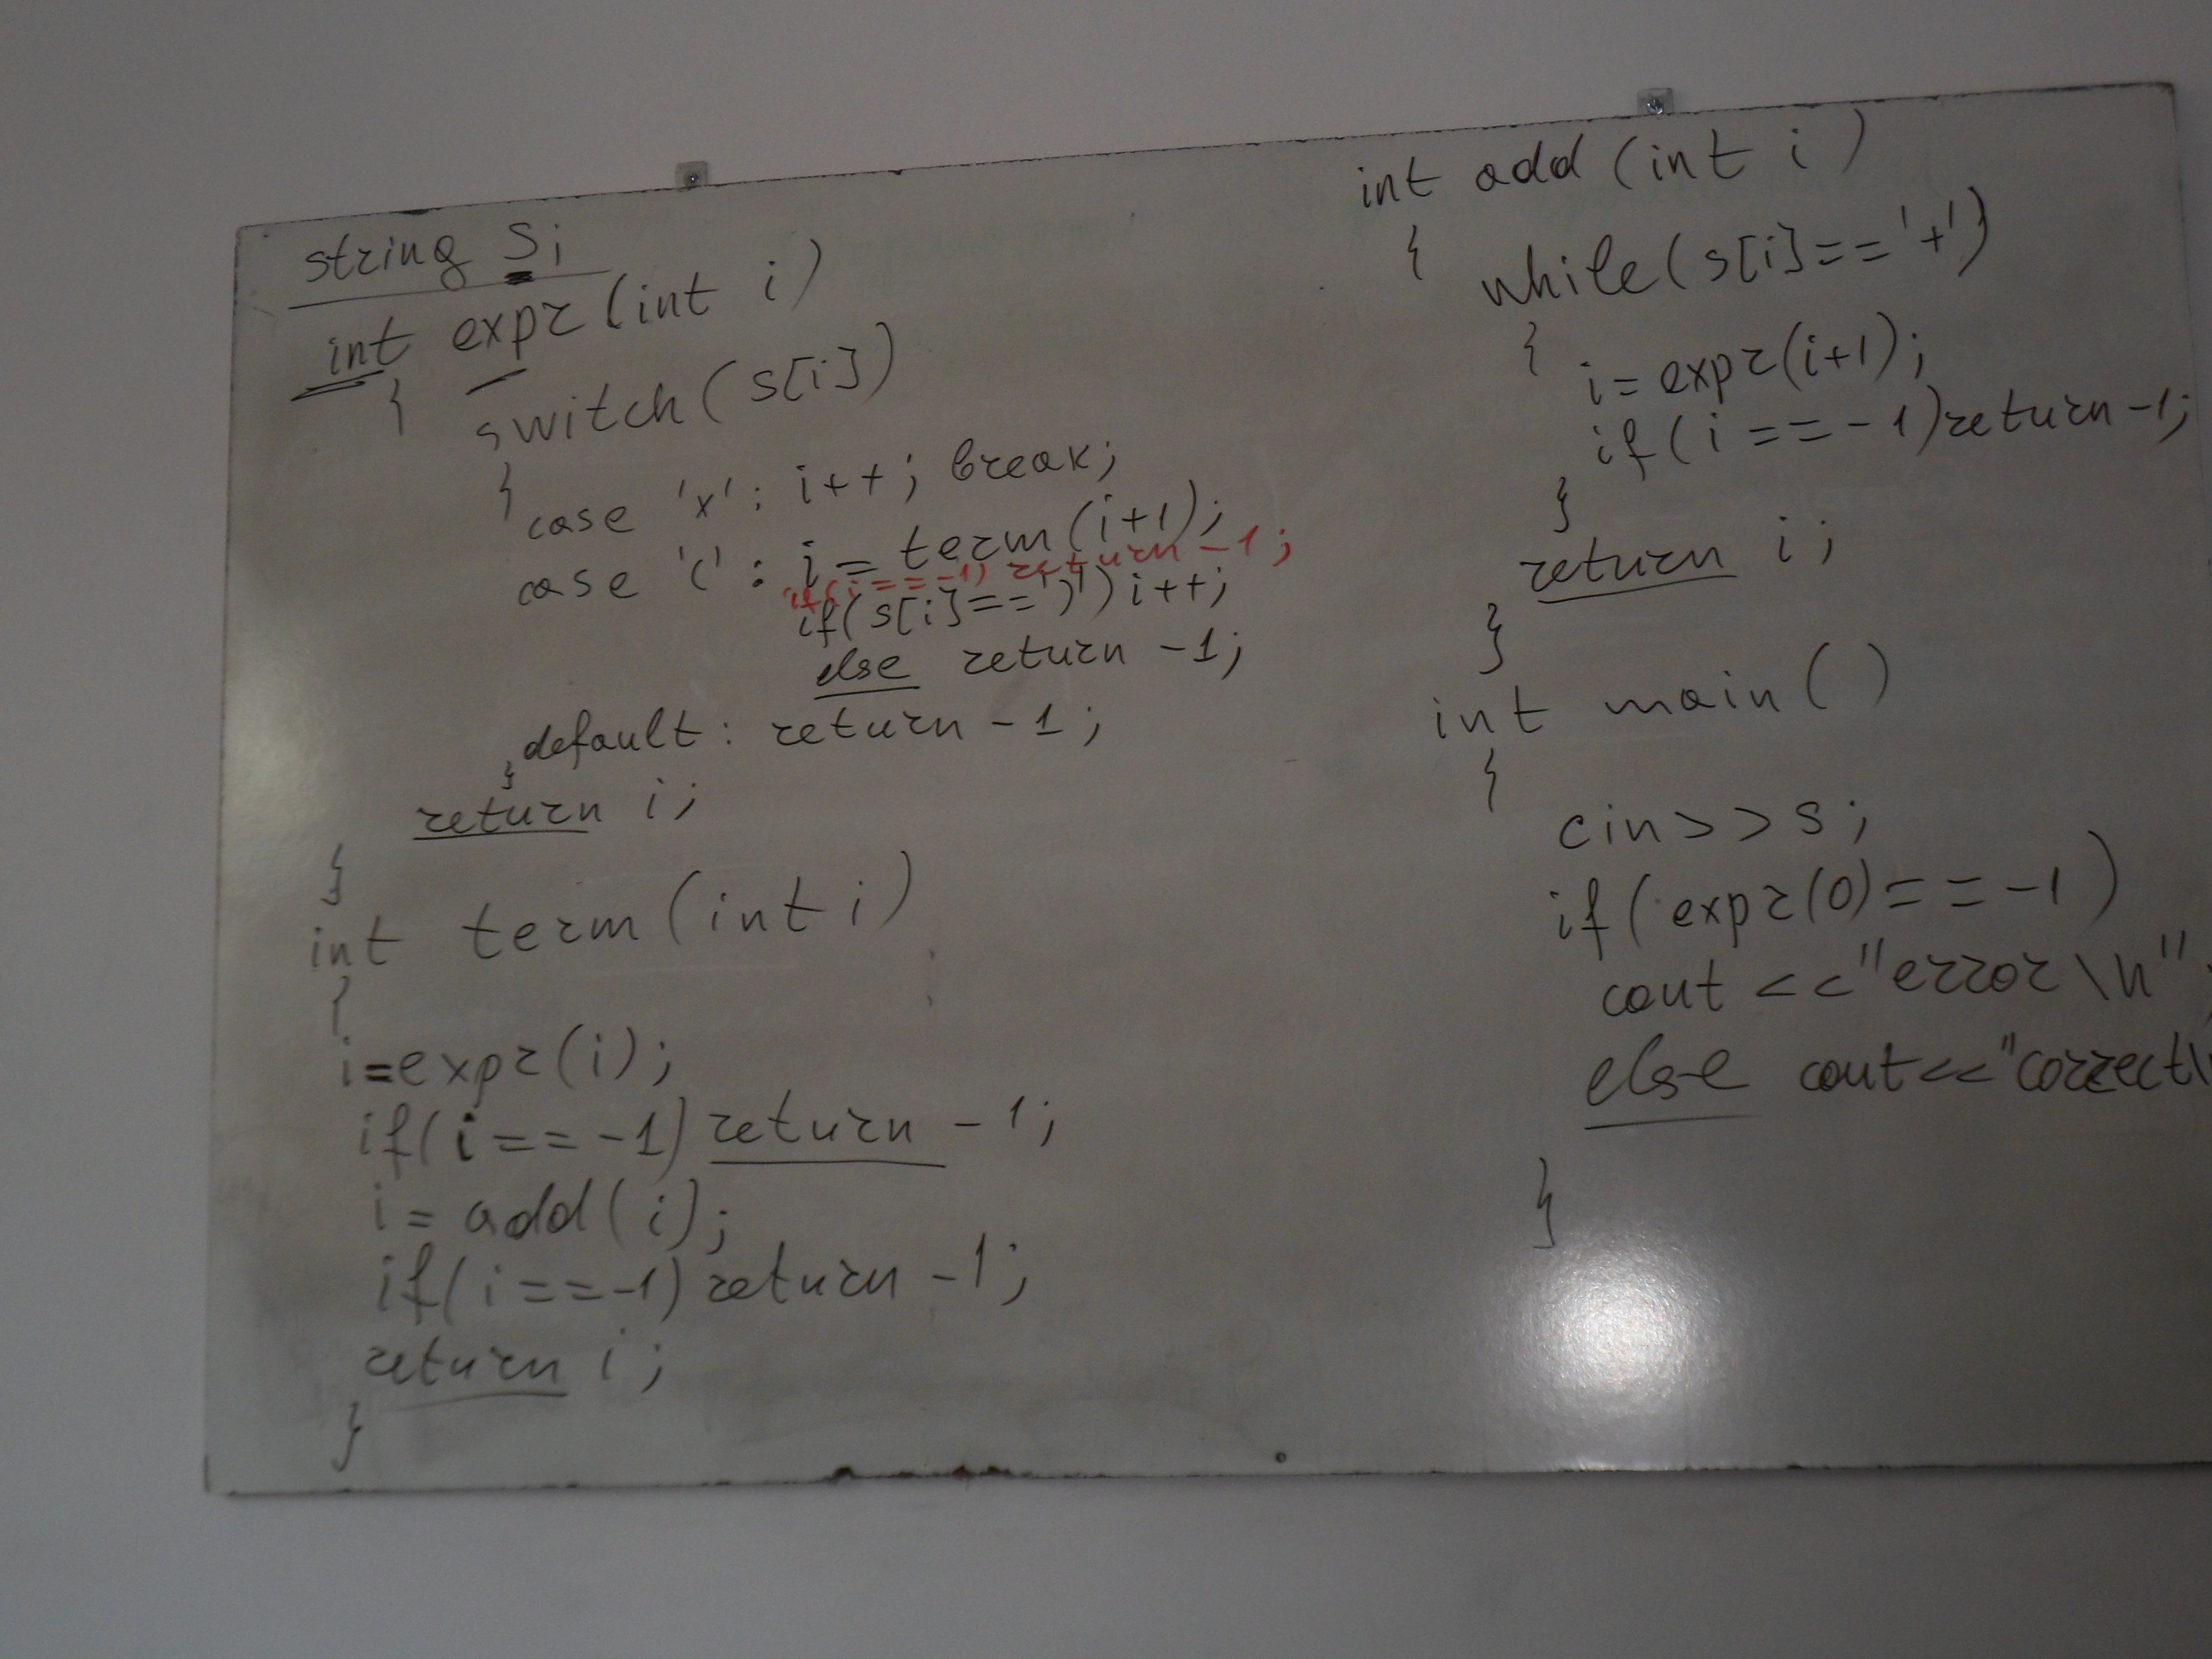 string S;
int expr(int i)
{
switch(s[i])
{
case 'x': i++; break;
case '(': i = term(i+1);
if(i==-1) return -1;
if(s[i]==')') i++;
else return -1;
default: return -1;
}
return i;
}
int term(int i)
{
i=expr(i);
if(i==-1) return -1;
i=add(i);
if(i==-1) return -1;
return i;
}
int add(int i)
{
while(s[i]=='+')
{
i=expr(i+1);
if(i==-1)return-1;
}
return i;
}
int main()
{
cin>>s;
if(expr(0)==-1)
cout<<"error\n";
else cout<<"correct\
}